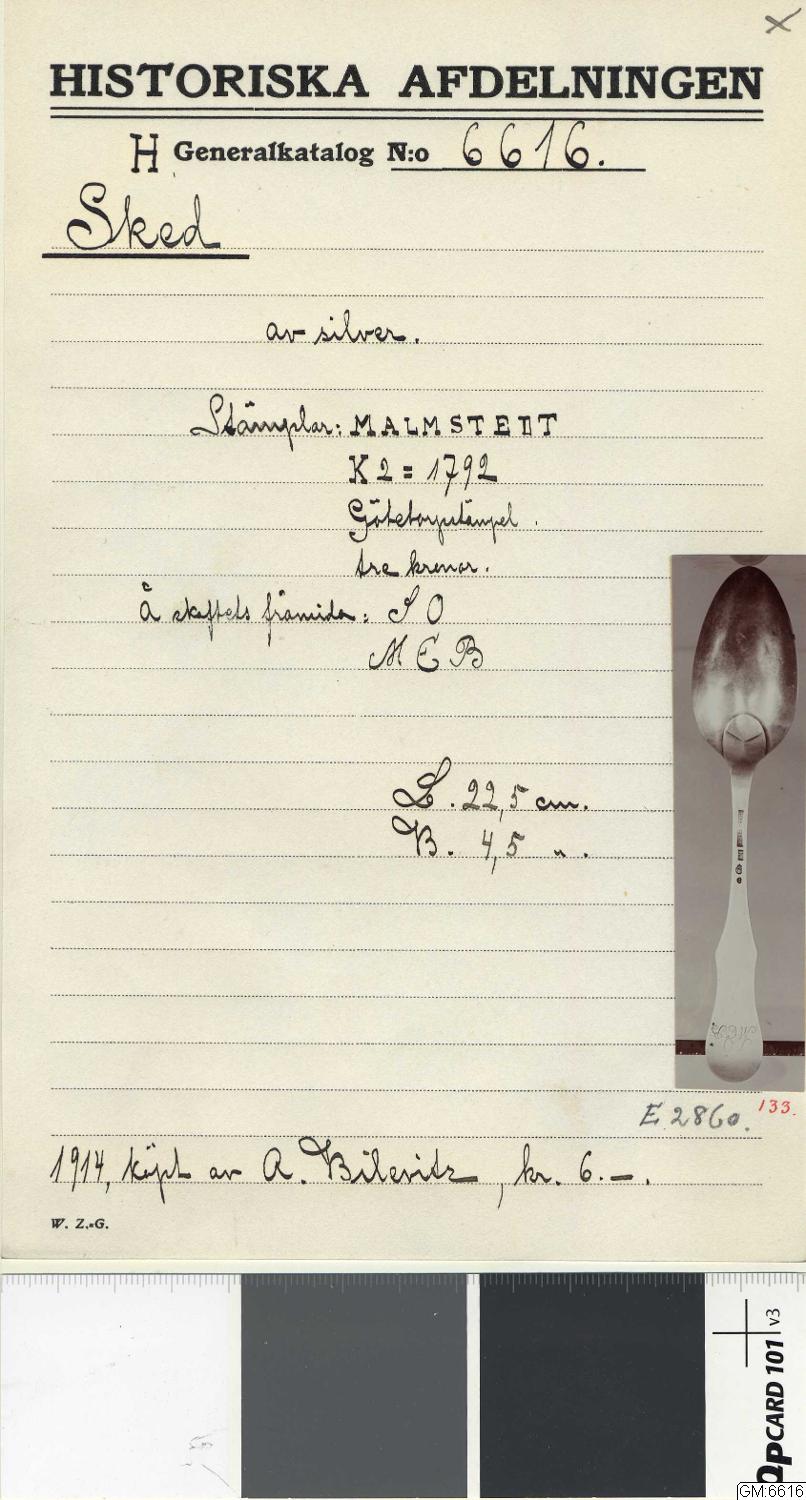 HISTORISKA AFDELNINGEN
H Generalkatalog N:o 6616.
Sked
av silver.
Stämplar: MALMSTEDT
K 2 = 1792
Göteborgsstämpel.
tre kronor.
Å skaftets framsida: S O
M E B
L. 22,5 cm.
B. 4,5 " .
E 2860. 133.
1914, köpt av A. Bilevitz, kr. 6.–.
W. Z.-G.
QPCARD 101 v3
GM:6616